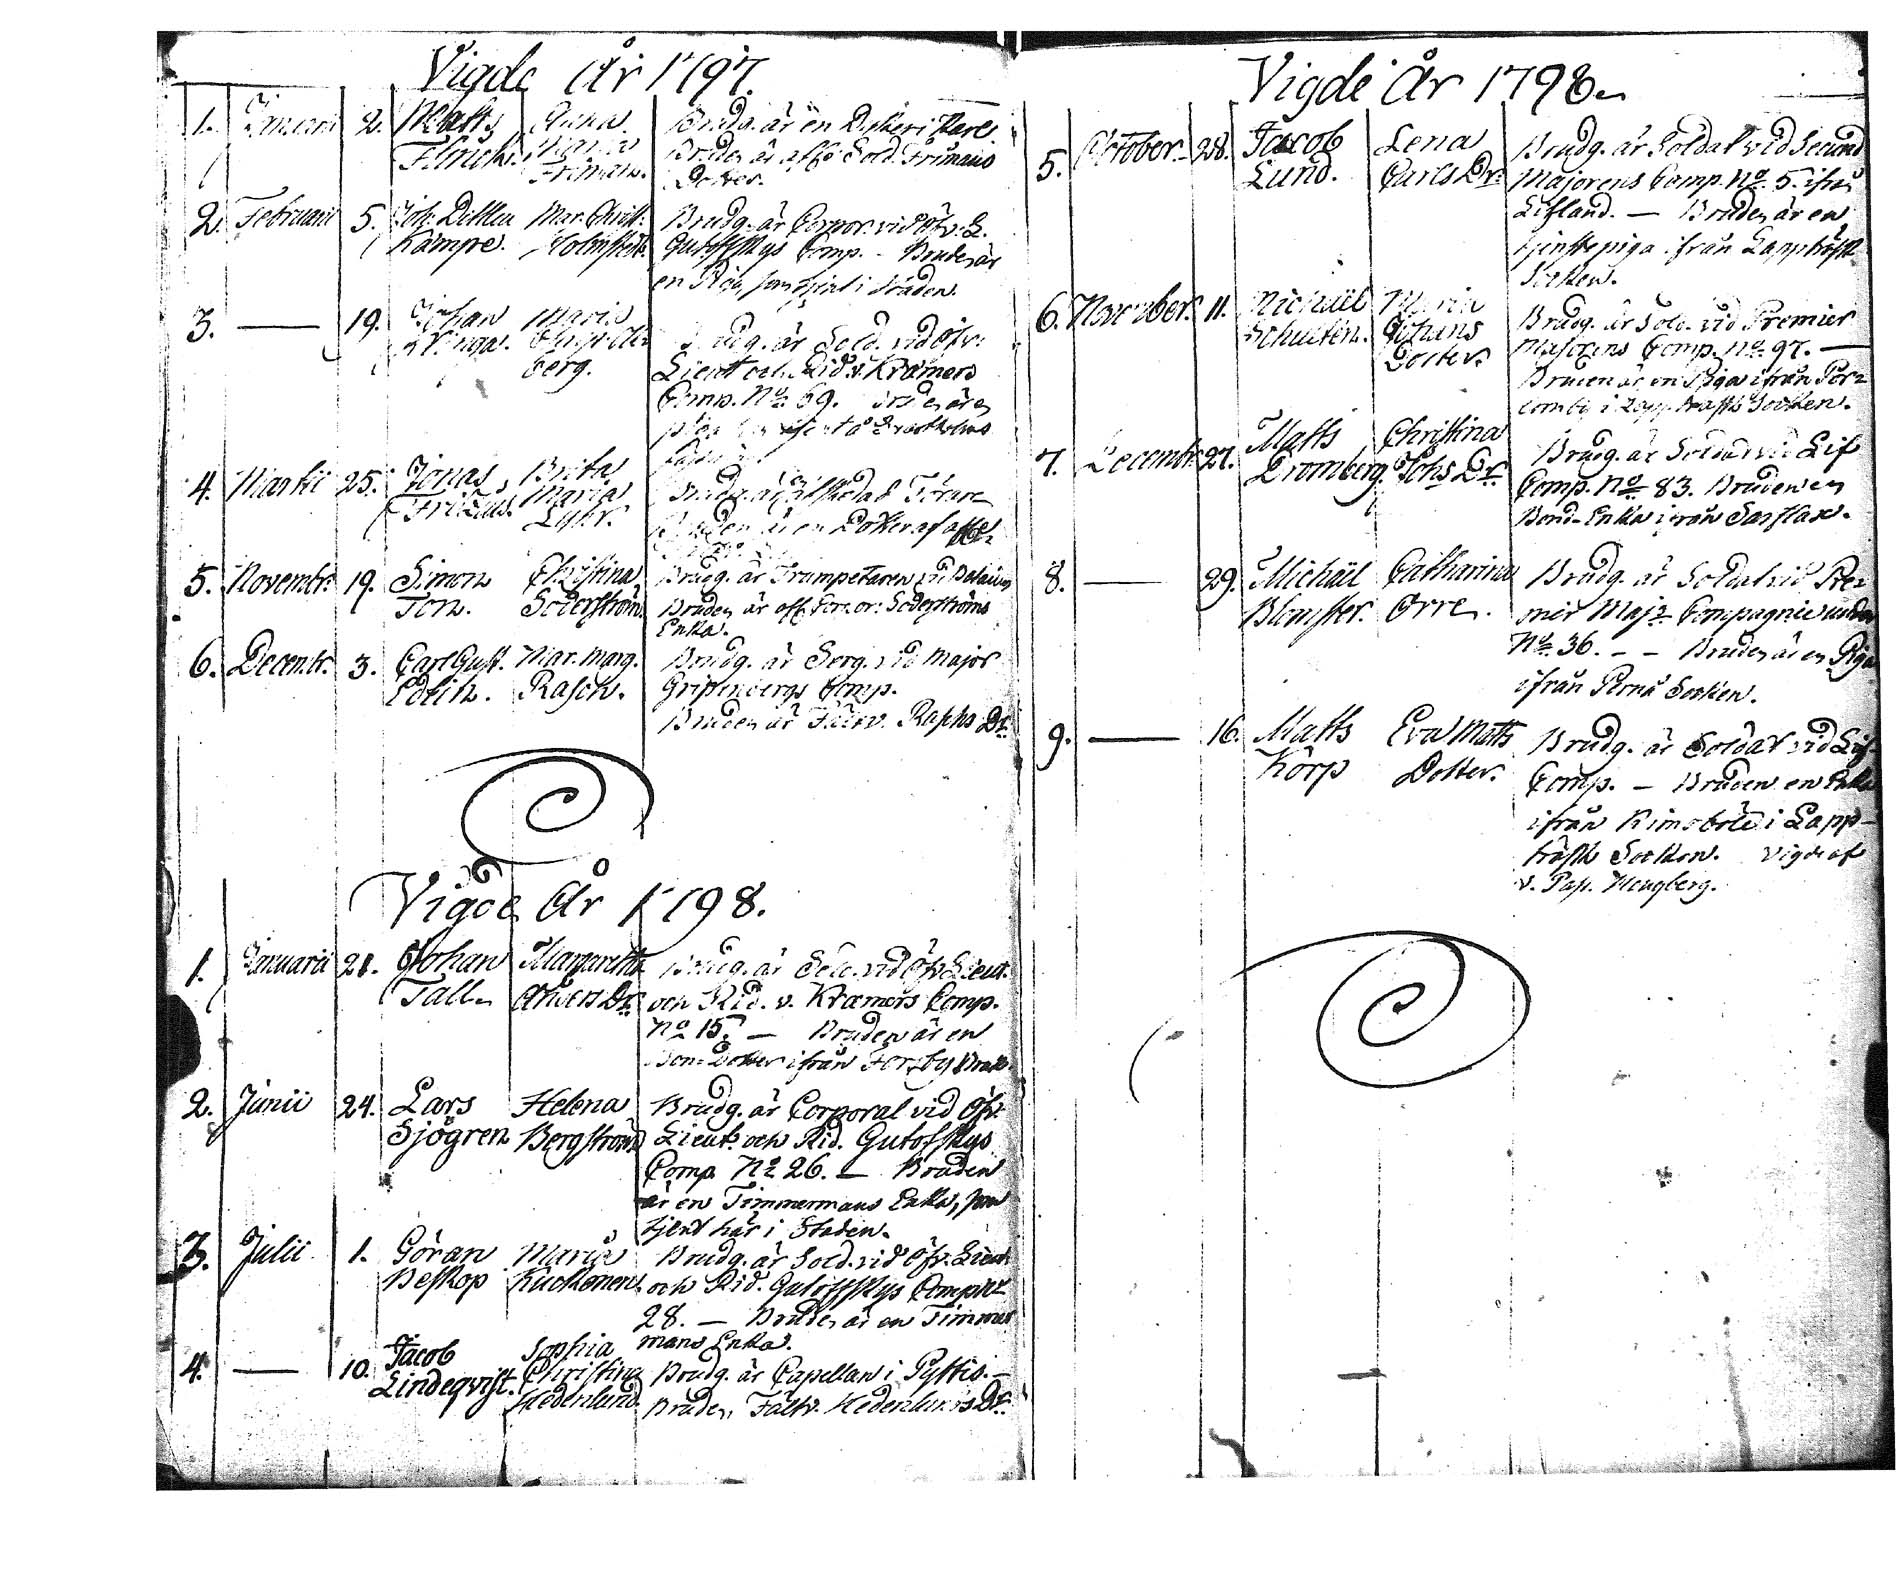 Vigde År 1797.
1. Januarii 2. Matts Anna Brudg. är en
Maria Bruden är aff: Sold. Frimans
Friman. Dotter.
2. Februarii 5. Joh. Mar. Christ: Brudg. är Corpor. vid Öfv: L.
Kämpe. Holmstedt. Gutoffskys Comp. - Bruden är
en Piga som tjent i Staden.
3. — 19. Johan Maria Brudg. är Sold. vid Öfv:
berg. Lieutt och Rid. v. Kræmers
Comp. No 69. Bruden är en
4. Martii 25. Jonas Brita Brudg. är Förare
Maria Bruden är en Dotter af aff:
5. Novembr: 19. Simon Christina Brudg. är Trumpetaren vid
Ton. Söderström. Bruden är aff. Corpor: Söderströms
Enka.
6. Decembr. 3. Carl Gust. Mar. Marg. Brudg. är Serg. vid Major
Rasch. Gripenbergs Comp.
Bruden är Dr.
Vigde År 1798.
1. Januarii 21. Johan Margaretha Brudg. är Sold. vid Öfv. Lieut.
Tall. Anders Dr. och Rid. v. Kræmers Comp.
No 15. — Bruden är en
Bond Dotter ifrån Forsby
2. Junii 24. Lars Helena Brudg. är Corporal vid Öfv.
Sjögren Bergström Lieut: och Rid. Gutofskys
Comp. No 26. — Bruden
är en Timmermans Enka, som
tjent här i Staden.
3. Julii 1. Göran Maria Brudg. är Sold. vid Öfv. Lieut
Beskop Kuckonen. och Rid. Gutoffskys Comp No
28. — Bruden är en Timmer
mans Enka.
4. — 10. Jacob Sophia
Lindeqvist. Christina Brudg. är Capellan i Pyttis. —
Hedenlund. Bruden Fältv. Hedenlunds Dr.
Vigde År 1798.
5. October. 28. Jacob Lena Brudg. är Soldat vid Secund
Lund. Carls Dr. Majorens Comp. No 5. ifrån
Lifland. — Bruden är en
tjenstepiga ifrån Lappträsk
Socken.
6. November. 11. Michaël Maria Brudg. är Sold. vid Premier
Schultén. Johans Majorens Comp. No 97. —
Dotter. Bruden är en Piga ifrån
i Lappträsks Socken.
7. Decembr. 27. Matts Christina Brudg. är Soldat vid Lif
Dromberg. Johs Dr. Comp. No 83. Bruden en
Bond-Enka ifrån Sarflax.
8. — 29. Michaël Catharina Brudg. är Soldat vid Pre-
Blomster. Orre. mier Majs Compagnie under
No 36. — — Bruden är en Piga
ifrån Pernå Socken.
9. — 16. Matts Eva Matts Brudg. är Soldat vid Lif
Körp Dotter. Comp. — Bruden en Enka
ifrån Kimoböle i Lapp-
träsk Socken. Vigde af
v. Past.